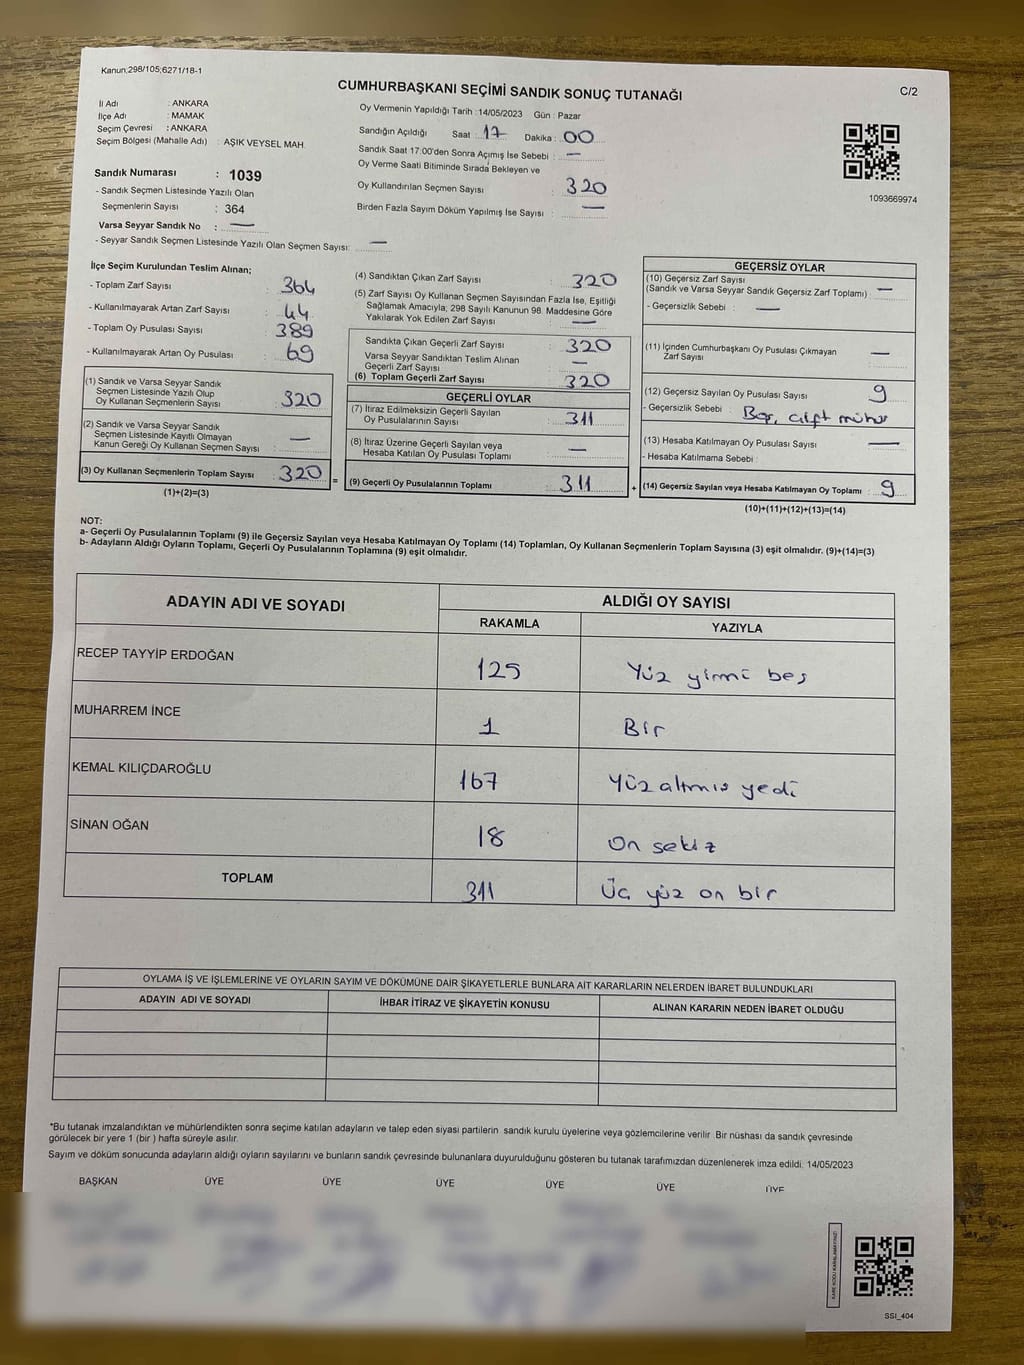 Kanun;298/105;6271/18-1
CUMHURBAŞKANI SEÇİMİ SANDIK SONUÇ TUTANAĞI
C/2
İl Adı : ANKARA
İlçe Adı : MAMAK
Seçim Çevresi : ANKARA
Seçim Bölgesi (Mahalle Adı) : AŞIK VEYSEL MAH.
Sandık Numarası : 1039
- Sandık Seçmen Listesinde Yazılı Olan
Seçmenlerin Sayısı : 364
Varsa Seyyar Sandık No : —
- Seyyar Sandık Seçmen Listesinde Yazılı Olan Seçmen Sayısı: —
Oy Vermenin Yapıldığı Tarih : 14/05/2023 Gün : Pazar
Sandığın Açıldığı Saat : 17 Dakika : 00
Sandık Saat 17:00'den Sonra Açımış İse Sebebi : —
Oy Verme Saati Bitiminde Sırada Bekleyen ve
Oy Kullandırılan Seçmen Sayısı : 320
Birden Fazla Sayım Döküm Yapılmış İse Sayısı : —
1093669974
İlçe Seçim Kurulundan Teslim Alınan;
- Toplam Zarf Sayısı : 364
- Kullanılmayarak Artan Zarf Sayısı : 44
- Toplam Oy Pusulası Sayısı : 389
- Kullanılmayarak Artan Oy Pusulası : 69
(1) Sandık ve Varsa Seyyar Sandık
Seçmen Listesinde Yazılı Olup
Oy Kullanan Seçmenlerin Sayısı : 320
(2) Sandık ve Varsa Seyyar Sandık
Seçmen Listesinde Kayıtlı Olmayan
Kanun Gereği Oy Kullanan Seçmen Sayısı : —
(3) Oy Kullanan Seçmenlerin Toplam Sayısı : 320
(1)+(2)=(3)
(4) Sandıktan Çıkan Zarf Sayısı : 320
(5) Zarf Sayısı Oy Kullanan Seçmen Sayısından Fazla İse, Eşitliği
Sağlamak Amacıyla, 298 Sayılı Kanunun 98. Maddesine Göre
Yakılarak Yok Edilen Zarf Sayısı : —
Sandıkta Çıkan Geçerli Zarf Sayısı : 320
Varsa Seyyar Sandıktan Teslim Alınan
Geçerli Zarf Sayısı : —
(6) Toplam Geçerli Zarf Sayısı : 320
GEÇERLİ OYLAR
(7) İtiraz Edilmeksizin Geçerli Sayılan
Oy Pusulalarının Sayısı : 311
(8) İtiraz Üzerine Geçerli Sayılan veya
Hesaba Katılan Oy Pusulası Toplamı : —
= (9) Geçerli Oy Pusulalarının Toplamı : 311
GEÇERSİZ OYLAR
(10) Geçersiz Zarf Sayısı
(Sandık ve Varsa Seyyar Sandık Geçersiz Zarf Toplamı) : —
- Geçersizlik Sebebi : —
(11) İçinden Cumhurbaşkanı Oy Pusulası Çıkmayan
Zarf Sayısı : —
(12) Geçersiz Sayılan Oy Pusulası Sayısı : 9
- Geçersizlik Sebebi : Boş, çift mühür
(13) Hesaba Katılmayan Oy Pusulası Sayısı : —
- Hesaba Katılmama Sebebi :
+ (14) Geçersiz Sayılan veya Hesaba Katılmayan Oy Toplamı : 9
(10)+(11)+(12)+(13)=(14)
NOT:
a- Geçerli Oy Pusulalarının Toplamı (9) ile Geçersiz Sayılan veya Hesaba Katılmayan Oy Toplamı (14) Toplamları, Oy Kullanan Seçmenlerin Toplam Sayısına (3) eşit olmalıdır. (9)+(14)=(3)
b- Adayların Aldığı Oyların Toplamı, Geçerli Oy Pusulalarının Toplamına (9) eşit olmalıdır.
ADAYIN ADI VE SOYADI ALDIĞI OY SAYISI
RAKAMLA YAZIYLA
RECEP TAYYİP ERDOĞAN 125 Yüz yirmi beş
MUHARREM İNCE 1 Bir
KEMAL KILIÇDAROĞLU 167 Yüz altmış yedi
SİNAN OĞAN 18 On sekiz
TOPLAM 311 Üç yüz on bir
OYLAMA İŞ VE İŞLEMLERİNE VE OYLARIN SAYIM VE DÖKÜMÜNE DAİR ŞİKAYETLERLE BUNLARA AİT KARARLARIN NELERDEN İBARET BULUNDUKLARI
ADAYIN ADI VE SOYADI İHBAR İTİRAZ VE ŞİKAYETİN KONUSU ALINAN KARARIN NEDEN İBARET OLDUĞU
*Bu tutanak imzalandıktan ve mühürlendikten sonra seçime katılan adayların ve talep eden siyasi partilerin sandık kurulu üyelerine veya gözlemcilerine verilir. Bir nüshası da sandık çevresinde
görülecek bir yere 1 (bir ) hafta süreyle asılır.
Sayım ve döküm sonucunda adayların aldığı oyların sayılarını ve bunların sandık çevresinde bulunanlara duyurulduğunu gösteren bu tutanak tarafımızdan düzenlenerek imza edildi. 14/05/2023
BAŞKAN ÜYE ÜYE ÜYE ÜYE ÜYE ÜYE
SSI_404